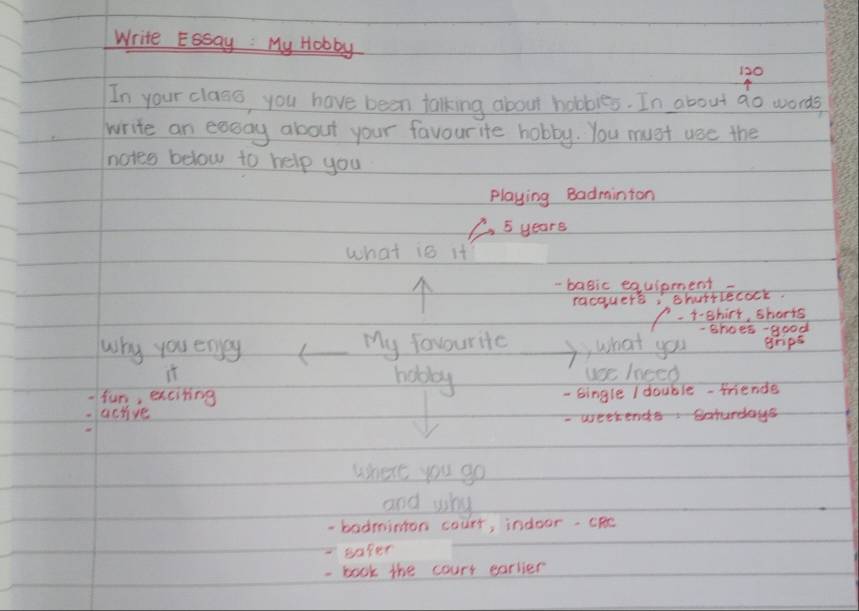 Write Essay : My Hobby
120
In your class, you have been talking about hobbies. In about 90 words,
write an essay about your favourite hobby. You must use the
notes below to help you
Playing Badminton
5 years
what is it
- basic equipment -
racquets, shuttlecock.
- t-shirt, shorts
- shoes - good
grips
why you enjoy
it
My favourite
hobby
what you
use/need
- fun, exciting
- active
-
- single / double - friends
- weekends : Saturdays
where you go
and why
- badminton court, indoor - CRC
- safer
- book the court earlier